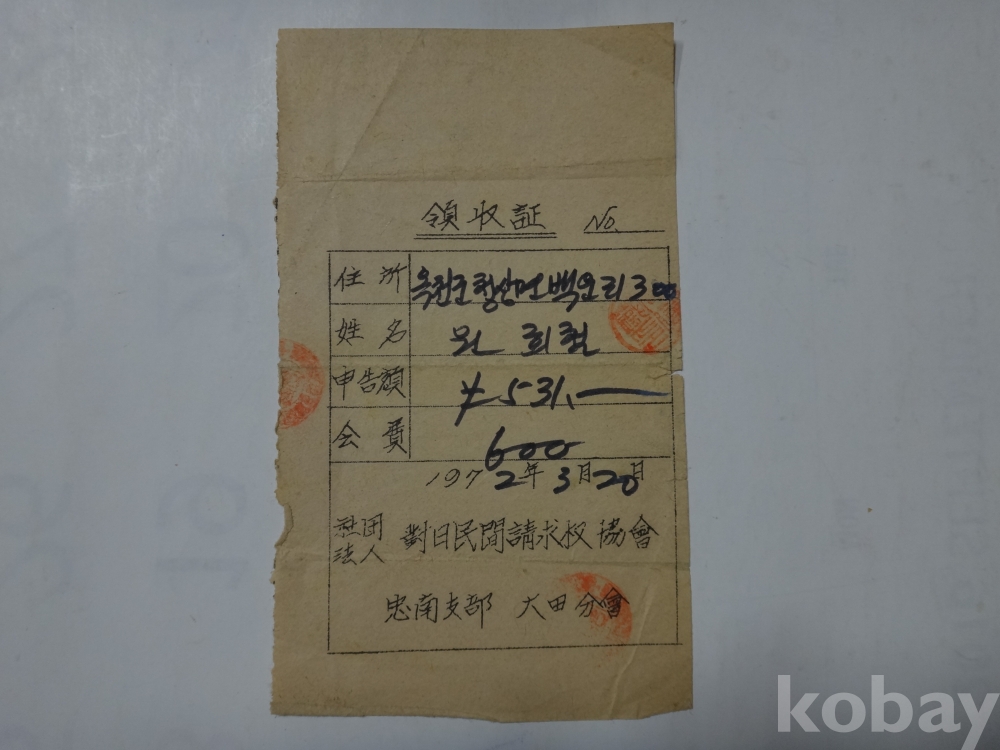 領収証 No.
住所 옥천군 청산면 백운리 300
姓名 원 희철
申告額 ¥531.—
会費 600
1972年3月20日
社団法人 對日民間請求权協會
忠南支部 大田分會
kobay